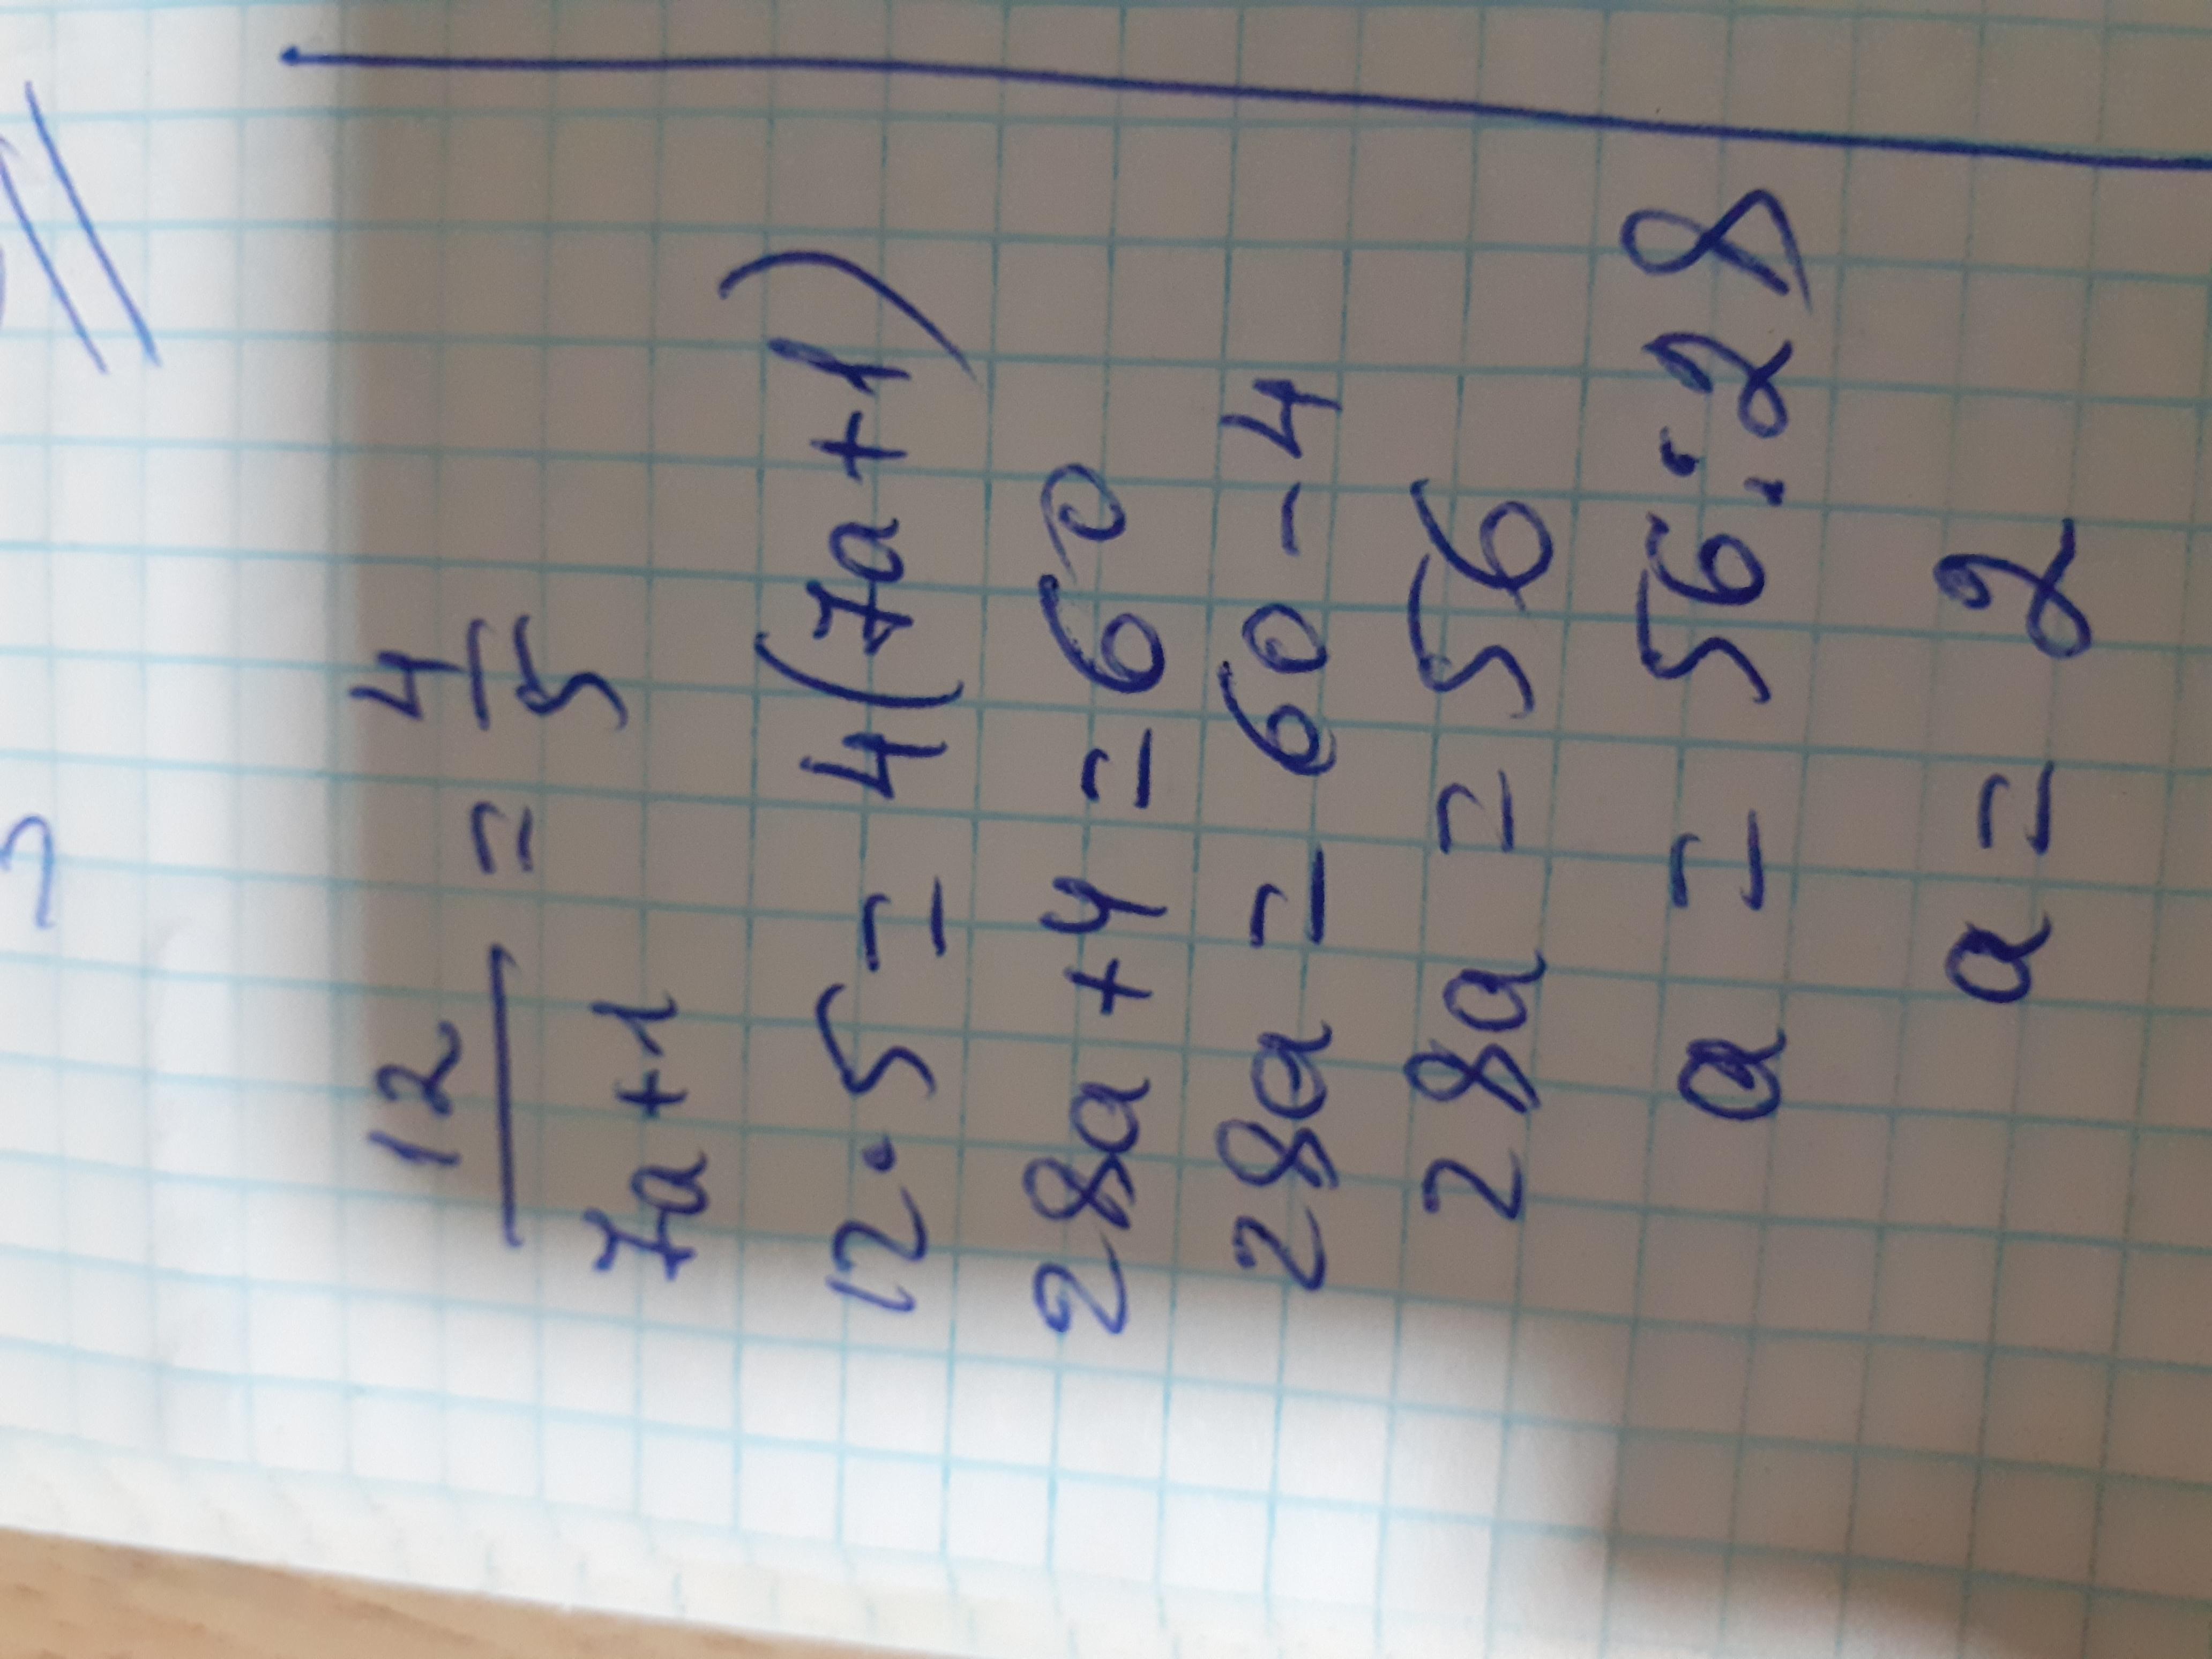 12/(7a+1) = 4/5
12·5 = 4(7a+1)
28a+4=60
28a = 60-4
28a = 56
a = 56:28
a = 2